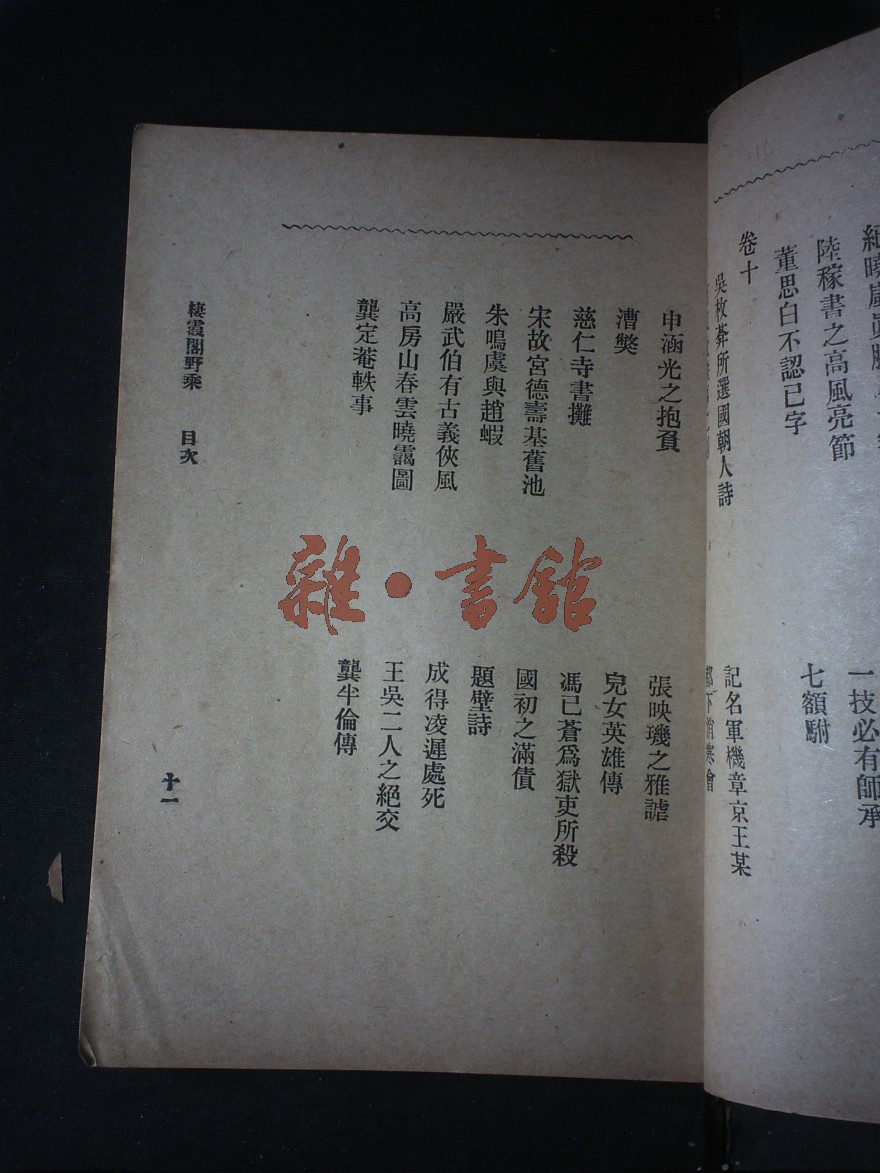 陸稼書之高風亮節
一技必有師承
董思白不認己字
七額駙
卷十
吳枚葊所選國朝人詩
記名軍機章京王某
申涵光之抱負
張映璣之雅謔
漕獘
兒女英雄傳
慈仁寺書攤
馮已蒼爲獄吏所殺
宋故宮德壽基舊池
國初之滿債
朱鳴虞與趙蝦
題壁詩
嚴武伯有古義俠風
成得凌遲處死
高房山春雲曉靄圖
王吳二人之絕交
龔定菴軼事
龔半倫傳
棲霞閣野乘 目次
十一
雜·書館